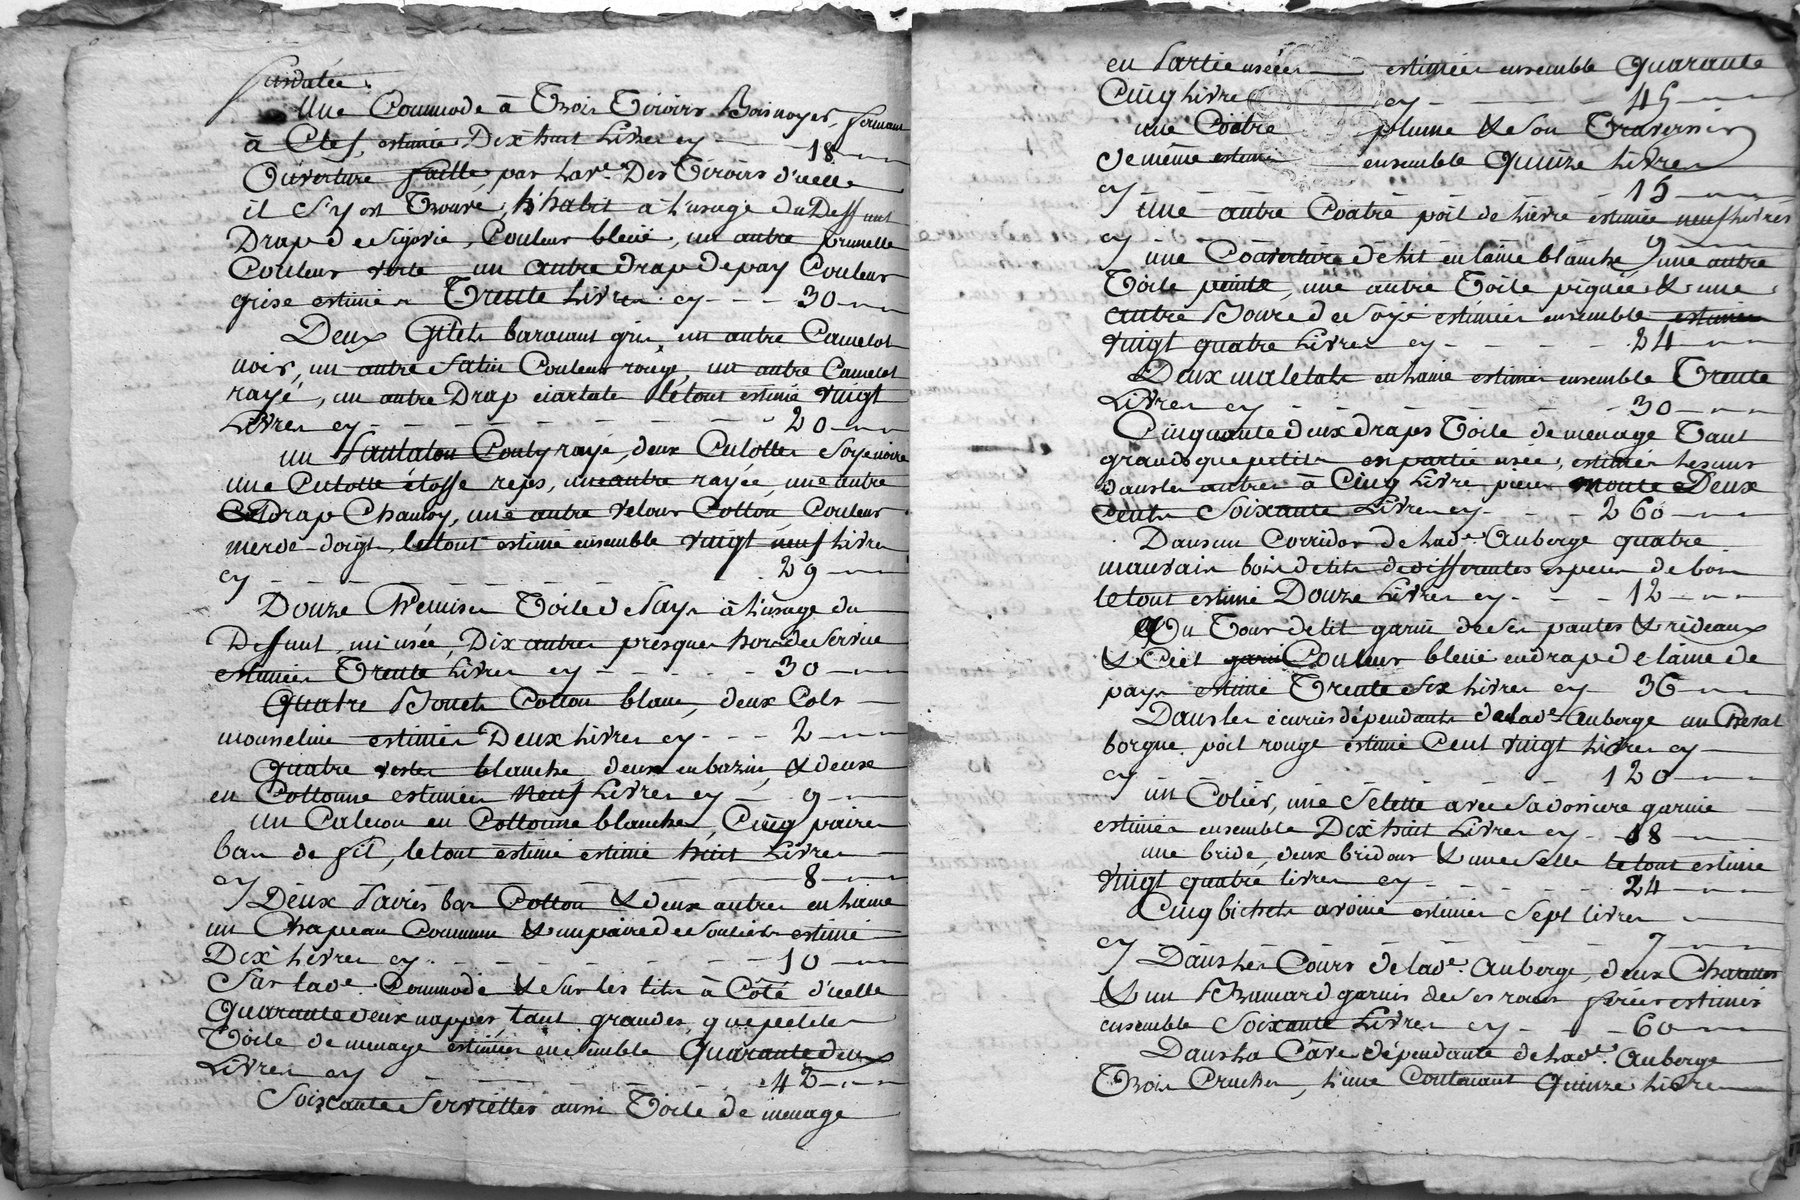 susdatée.
Une Commode à Trois Tiroirs Bois noyer, fermant
à Clef, estimée Dix huit Livres cy - - 18
Ouverture faitte par lad.e Des Tiroirs d'icelle
il s'y est Trouvé, l'habit à l'usage du Deffunt
Drap de Sigovie, Couleur bleüe, un autre prunelle
Couleur verte un autre drap de pay Couleur
grise estimés Trente Livres cy - - - 30
Deux Gilets baracant gris, un autre Camelot
noir, un autre Satin Couleur rouge, un autre Camelot
rayé, un autre Drap écarlate le tout estimé vingt
Livres cy - - - - - - - - 20
un Pantalon Couty rayé, deux Culottes Soye noire
une Culotte étoffe reps, une autre rayée, une autre
Drap Chamoy, une autre velour Cotton, Couleur
merde-doigt, le tout estimé ensemble vingt neuf Livres
cy - - - - - - - - 29
Douze Chemises Toile de Pays à l'usage du
Deffunt, mi usée, Dix autres presques hors de Service
estimées Trente Livres cy - - - - - 30
Quatre Bonets Cotton blanc, deux Cols
mousseline estimés Deux Livres cy - - - 2
Quatre vestes blanche, deux en bazin, & deux
en Cottonne estimées neuf Livres cy - 9
un Caleçon en Cottonne blanche, Cinq paires
bas de fil, le tout estimé estimé huit Livres
cy - - - - - - - - 8
Deux Paires bas Cotton & deux autres en Laine
un Chapeau Commun & un paire de Souliers estimé
Dix Livres cy - - - - - - - - 10
Sur lad.e Commode & sur les lits à Côté d'icelle
Quarante deux nappes, tant grandes, que petites
Toile de menage estimées ensemble Quarante deux
Livres cy - - - - - - - 42
Soixante Serviettes aussi Toile de menage
en Partie usées estimées ensemble Quarante
Cinq Livres cy - - - - - 45
une Coëtre plume & son Traversier
de même estimé ensemble Quinze Livres
cy - - - - - - - 15
une autre Coëtre poil de Lièvre estimée neuf Livres
cy - - - - - - - 9
une Couverture de Lit en laine blanche, une autre
Toile peinte, une autre Toile piquée & une
autre Boure de Soye estimées ensemble estimées
vingt quatre Livres cy - - - - - 24
Deux matelats en Laine estimés ensemble Trente
Livres cy - - - - - - - 30
Cinquante deux draps Toile de menage Tant
grands que petits en partie usée, estimés Les uns
dans les autres à Cinq Livre pieces monte Deux
Cents Soixante Livres cy - - - 260
Dans un Corridor de Lad.e Auberge quatre
mauvais bois de lits de differentes especes de bois
le tout estimé Douze Livres cy - - - 12
Un Tour de lit garni de ses pantes & rideaux
& Ciel garni Couleur bleüe en drap de laine de
pays estimé Trente Six Livres cy 36
Dans les écuries dépendants de lad.e Auberge un Cheval
borgne, poil rouge estimé Cent vingt Livres cy
cy - - - - - - - 120
un Colier, une Selette avec sa dossiere garnie
estimés ensemble Dix huit Livres cy - 18
une bride, deux bridons & une Selle le tout estimé
vingt quatre livres cy - - - - - 24
Cinq bichets avoine estimés Sept livres
cy - - - - - - - 7
Dans Les Cours de lad.e Auberge, deux Charettes
& un garnis de ses roues ferrées estimés
ensemble Soixante Livres cy - - - 60
Dans La Cave dépendante de Lad.e Auberge
Trois Cruches, l'une Contenant Quinze Livres